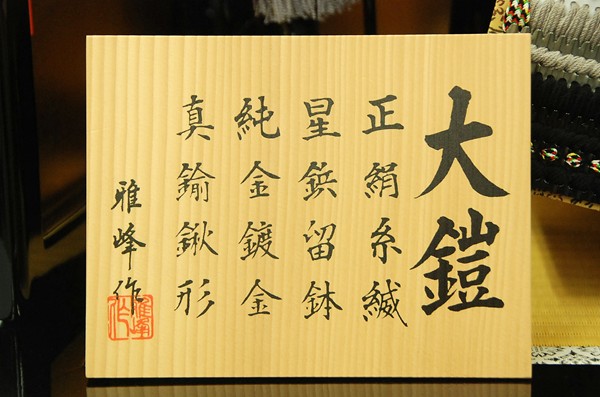 大鎧
正絹糸縅
星鋲留鉢
純金鍍金
真鍮鍬形
雅峰作